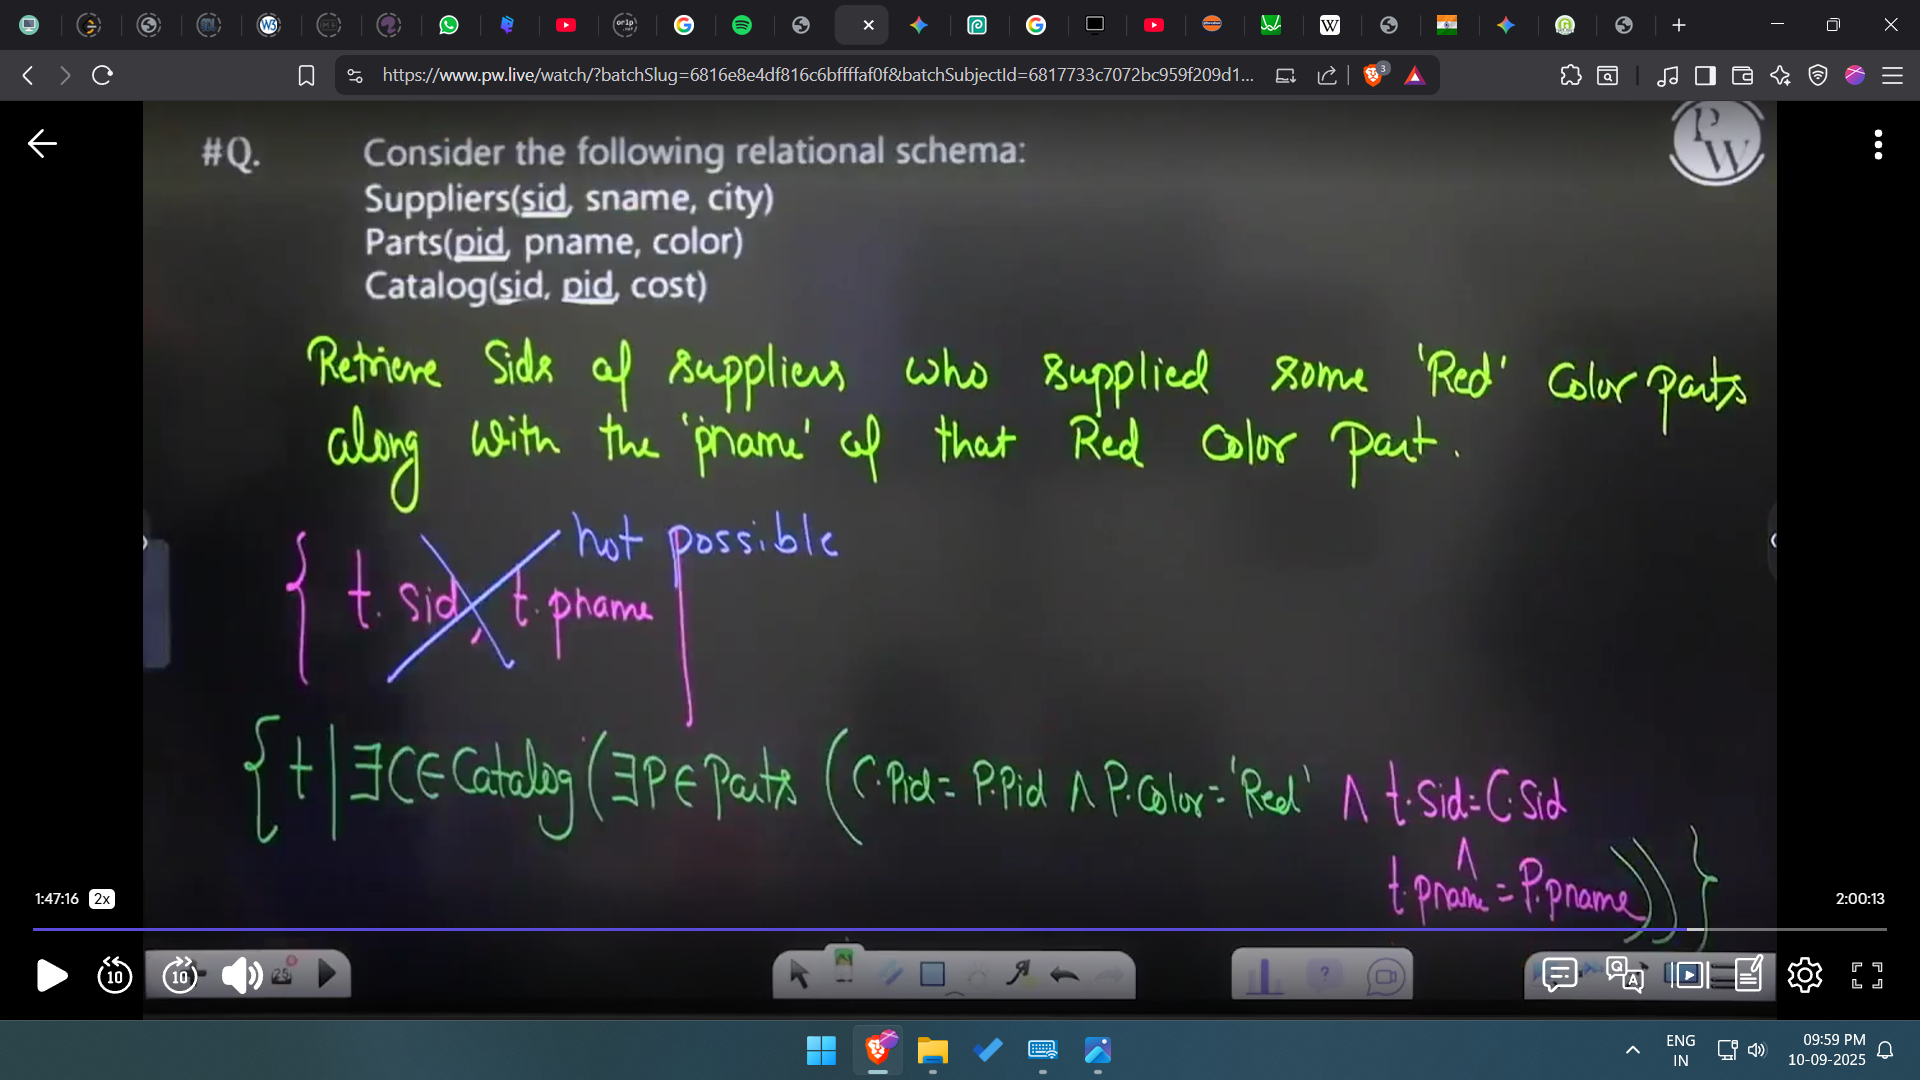 https://www.pw.live/watch/?batchSlug=6816e8e4df816c6bffffaf0f&batchSubjectId=6817733c7072bc959f209d1...
3
#Q. Consider the following relational schema:
PW
Suppliers(sid, sname, city)
Parts(pid, pname, color)
Catalog(sid, pid, cost)
Retrieve Sids of suppliers who supplied some 'Red' Color parts
along with the 'pname' of that Red Color part.
not possible
{ t.sid, t.pname |
{ t | ∃C∈Catalog (∃P∈Parts (C.Pid = P.Pid ∧ P.Color = 'Red' ∧ t.Sid = C.Sid
∧
t.pname = P.pname))) }
1:47:16 2x 2:00:13
10 10 25
ENG
IN
09:59 PM
10-09-2025